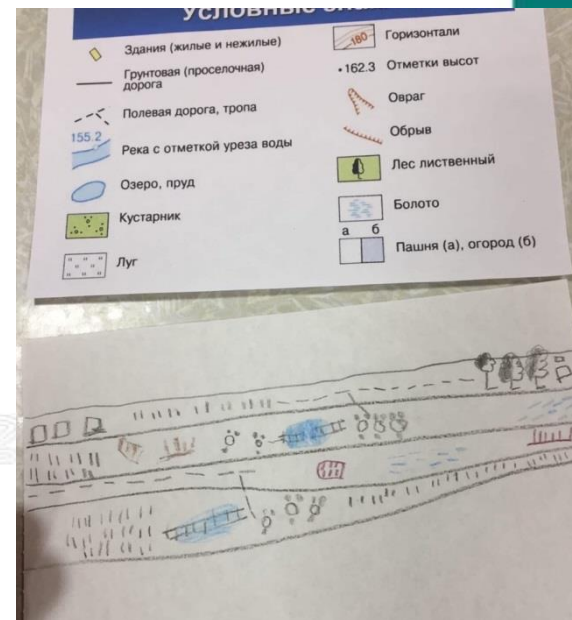 Условные зна
Здания (жилые и нежилые)
Грунтовая (проселочная)
дорога
Полевая дорога, тропа
155.2
Река с отметкой уреза воды
Озеро, пруд
Кустарник
Луг
180
Горизонтали
162.3 Отметки высот
Овраг
Обрыв
Лес лиственный
Болото
а б
Пашня (а), огород (б)